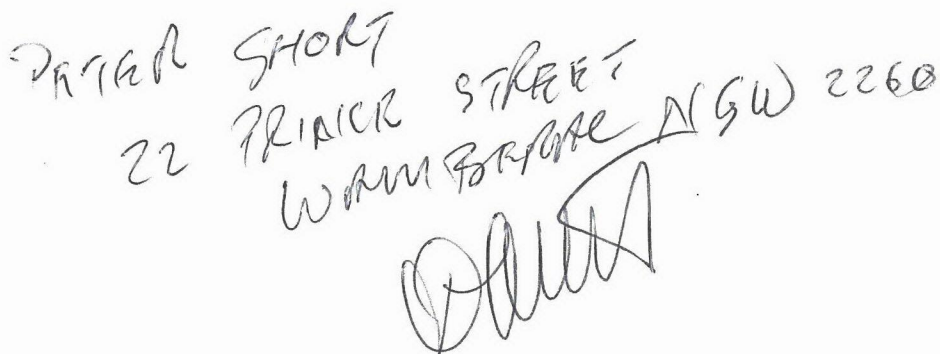 PETER SHORT
22 PRINCE STREET
WAMBERAL NSW 2260